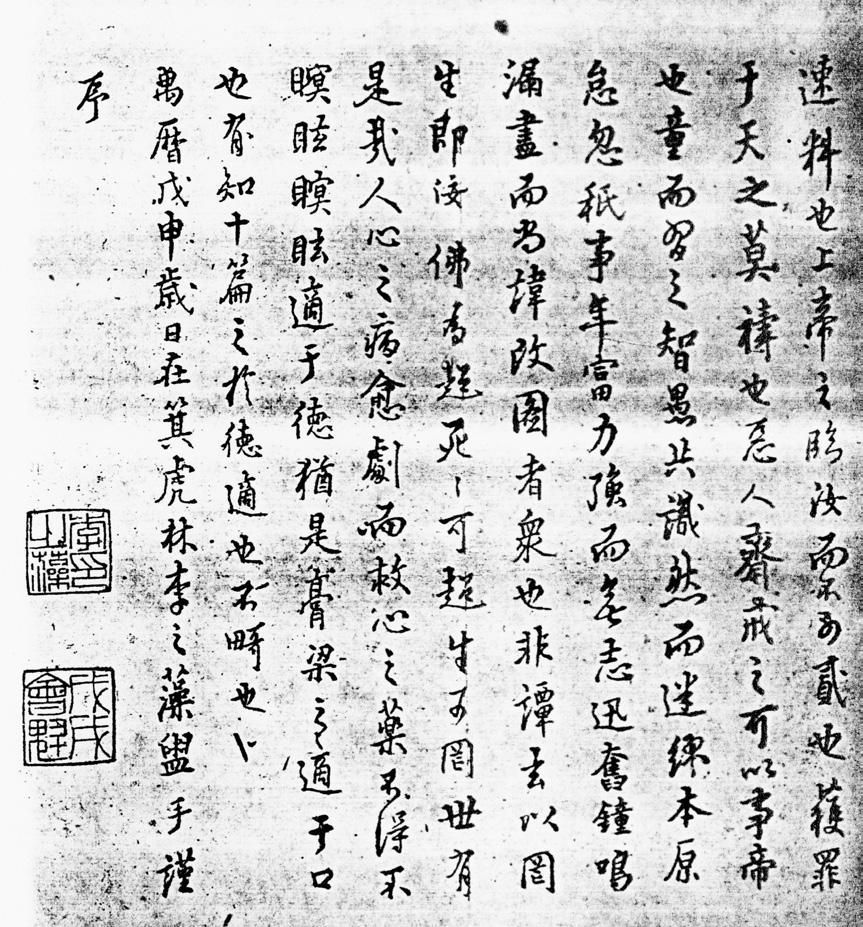 速料也上帝之臨汝而不可貳也獲罪
于天之莫禱也惡人齋戒之可以事帝
也童而習之智愚共識然而迷繆本原
怠忽秪事年富力強而無志迅奮鐘鳴
漏盡而尚諱改圖者衆也非譚玄以罔
生即佞佛為超死〻可超生可罔世有
是哉人心之病愈劇而救心之藥不得不
瞑眩瞑眩適于德猶是膏粱之適于口
也有知十篇之於德適也不畸也
萬曆戊申歲日在箕虎林李之藻盥手謹
序
李印之藻
戊戌會魁